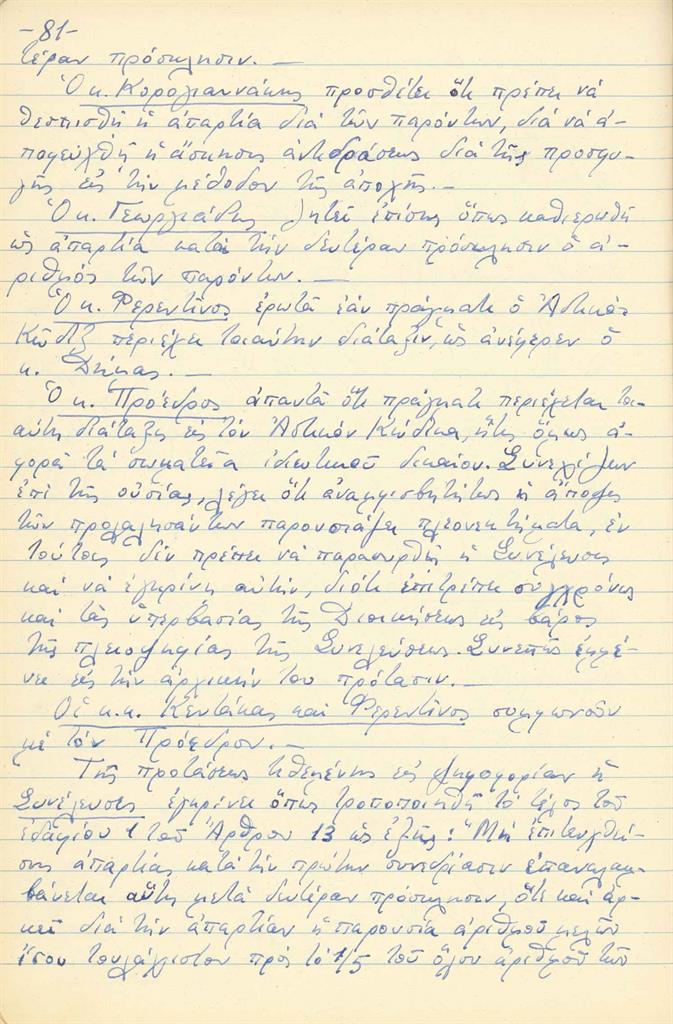 -81-
τέραν πρόσκλησιν. —
Ὁ κ. Κορογιαννάκης προσθέτει ὅτι πρέπει νά
θεσπισθῆ ἡ ἀπαρτία διά τῶν παρόντων, διά νά ἀ-
ποφευχθῆ ἡ ἄσκησις ἀντιδράσεως διά τῆς προσφυ-
γῆς εἰς τήν μέθοδον τῆς ἀποχῆς. —
Ὁ κ. Γεωργιάδης ζητεῖ ἐπίσης ὅπως καθιερωθῆ
ὡς ἀπαρτία κατά τήν δευτέραν πρόσκλησιν ὁ ἀ-
ριθμός τῶν παρόντων. —
Ὁ κ. Φερεντῖνος ἐρωτᾶ ἐάν πράγματι ὁ Ἀστικός
Κῶδιξ περιέχει τοιαύτην διάταξιν, ὡς ἀνέφερεν ὁ
κ. Δήμας. —
Ὁ κ. Πρόεδρος ἀπαντᾶ ὅτι πράγματι περιέχεται τοι-
αύτη διάταξις εἰς τόν Ἀστικόν Κώδικα, ἥτις ὅμως ἀ-
φορᾶ τά σωματεῖα ἰδιωτικοῦ δικαίου. Συνεχίζων
ἐπί τῆς οὐσίας, λέγει ὅτι ἀναμφισβητήτως ἡ ἄποψις
τῶν προλαλησάντων παρουσιάζει πλεονεκτήματα, ἐν
τούτοις δέν πρέπει νά παρασυρθῆ ἡ Συνέλευσις
καί νά ἐγκρίνη αὐτήν, διότι ἐπιτρέπει συγχρόνως
καί τάς ὑπερβασίας τῆς Διοικήσεως εἰς βάρος
τῆς πλειοψηφίας τῆς Συνελεύσεως. Συνεπῶς ἐμμέ-
νει εἰς τήν ἀρχικήν του πρότασιν. —
Οἱ κ.κ. Κεντάκας καί Φερεντῖνος συμφωνοῦν
μέ τόν Πρόεδρον. —
Τῆς προτάσεως τιθεμένης εἰς ψηφοφορίαν ἡ
Συνέλευσις ἐγκρίνει ὅπως τροποποιηθῆ τό τέλος τοῦ
ἐδαφίου 1 τοῦ Ἄρθρου 13 ὡς ἑξῆς: "Μή ἐπιτευχθεί-
σης ἀπαρτίας κατά τήν πρώτην συνεδρίασιν ἐπαναλαμ-
βάνεται αὕτη μετά δευτέραν πρόσκλησιν, ὅτε καί ἀρ-
κεῖ διά τήν ἀπαρτίαν ἡ παρουσία ἀριθμοῦ μελῶν
ἴσου τουλάχιστον πρός τό 1/5 τοῦ ὅλου ἀριθμοῦ τῶν